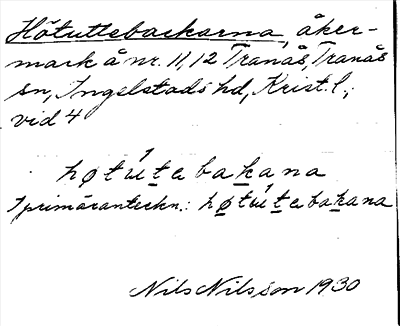 Hötuttebackarna, åker-
mark å nr. 11, 12 Tranås, Tranås
sn, Ingelstads hd, Krist. l.,
vid 4
høtútebakana
1 primäranteckn.: høtútebakana
Nils Nilsson 1930